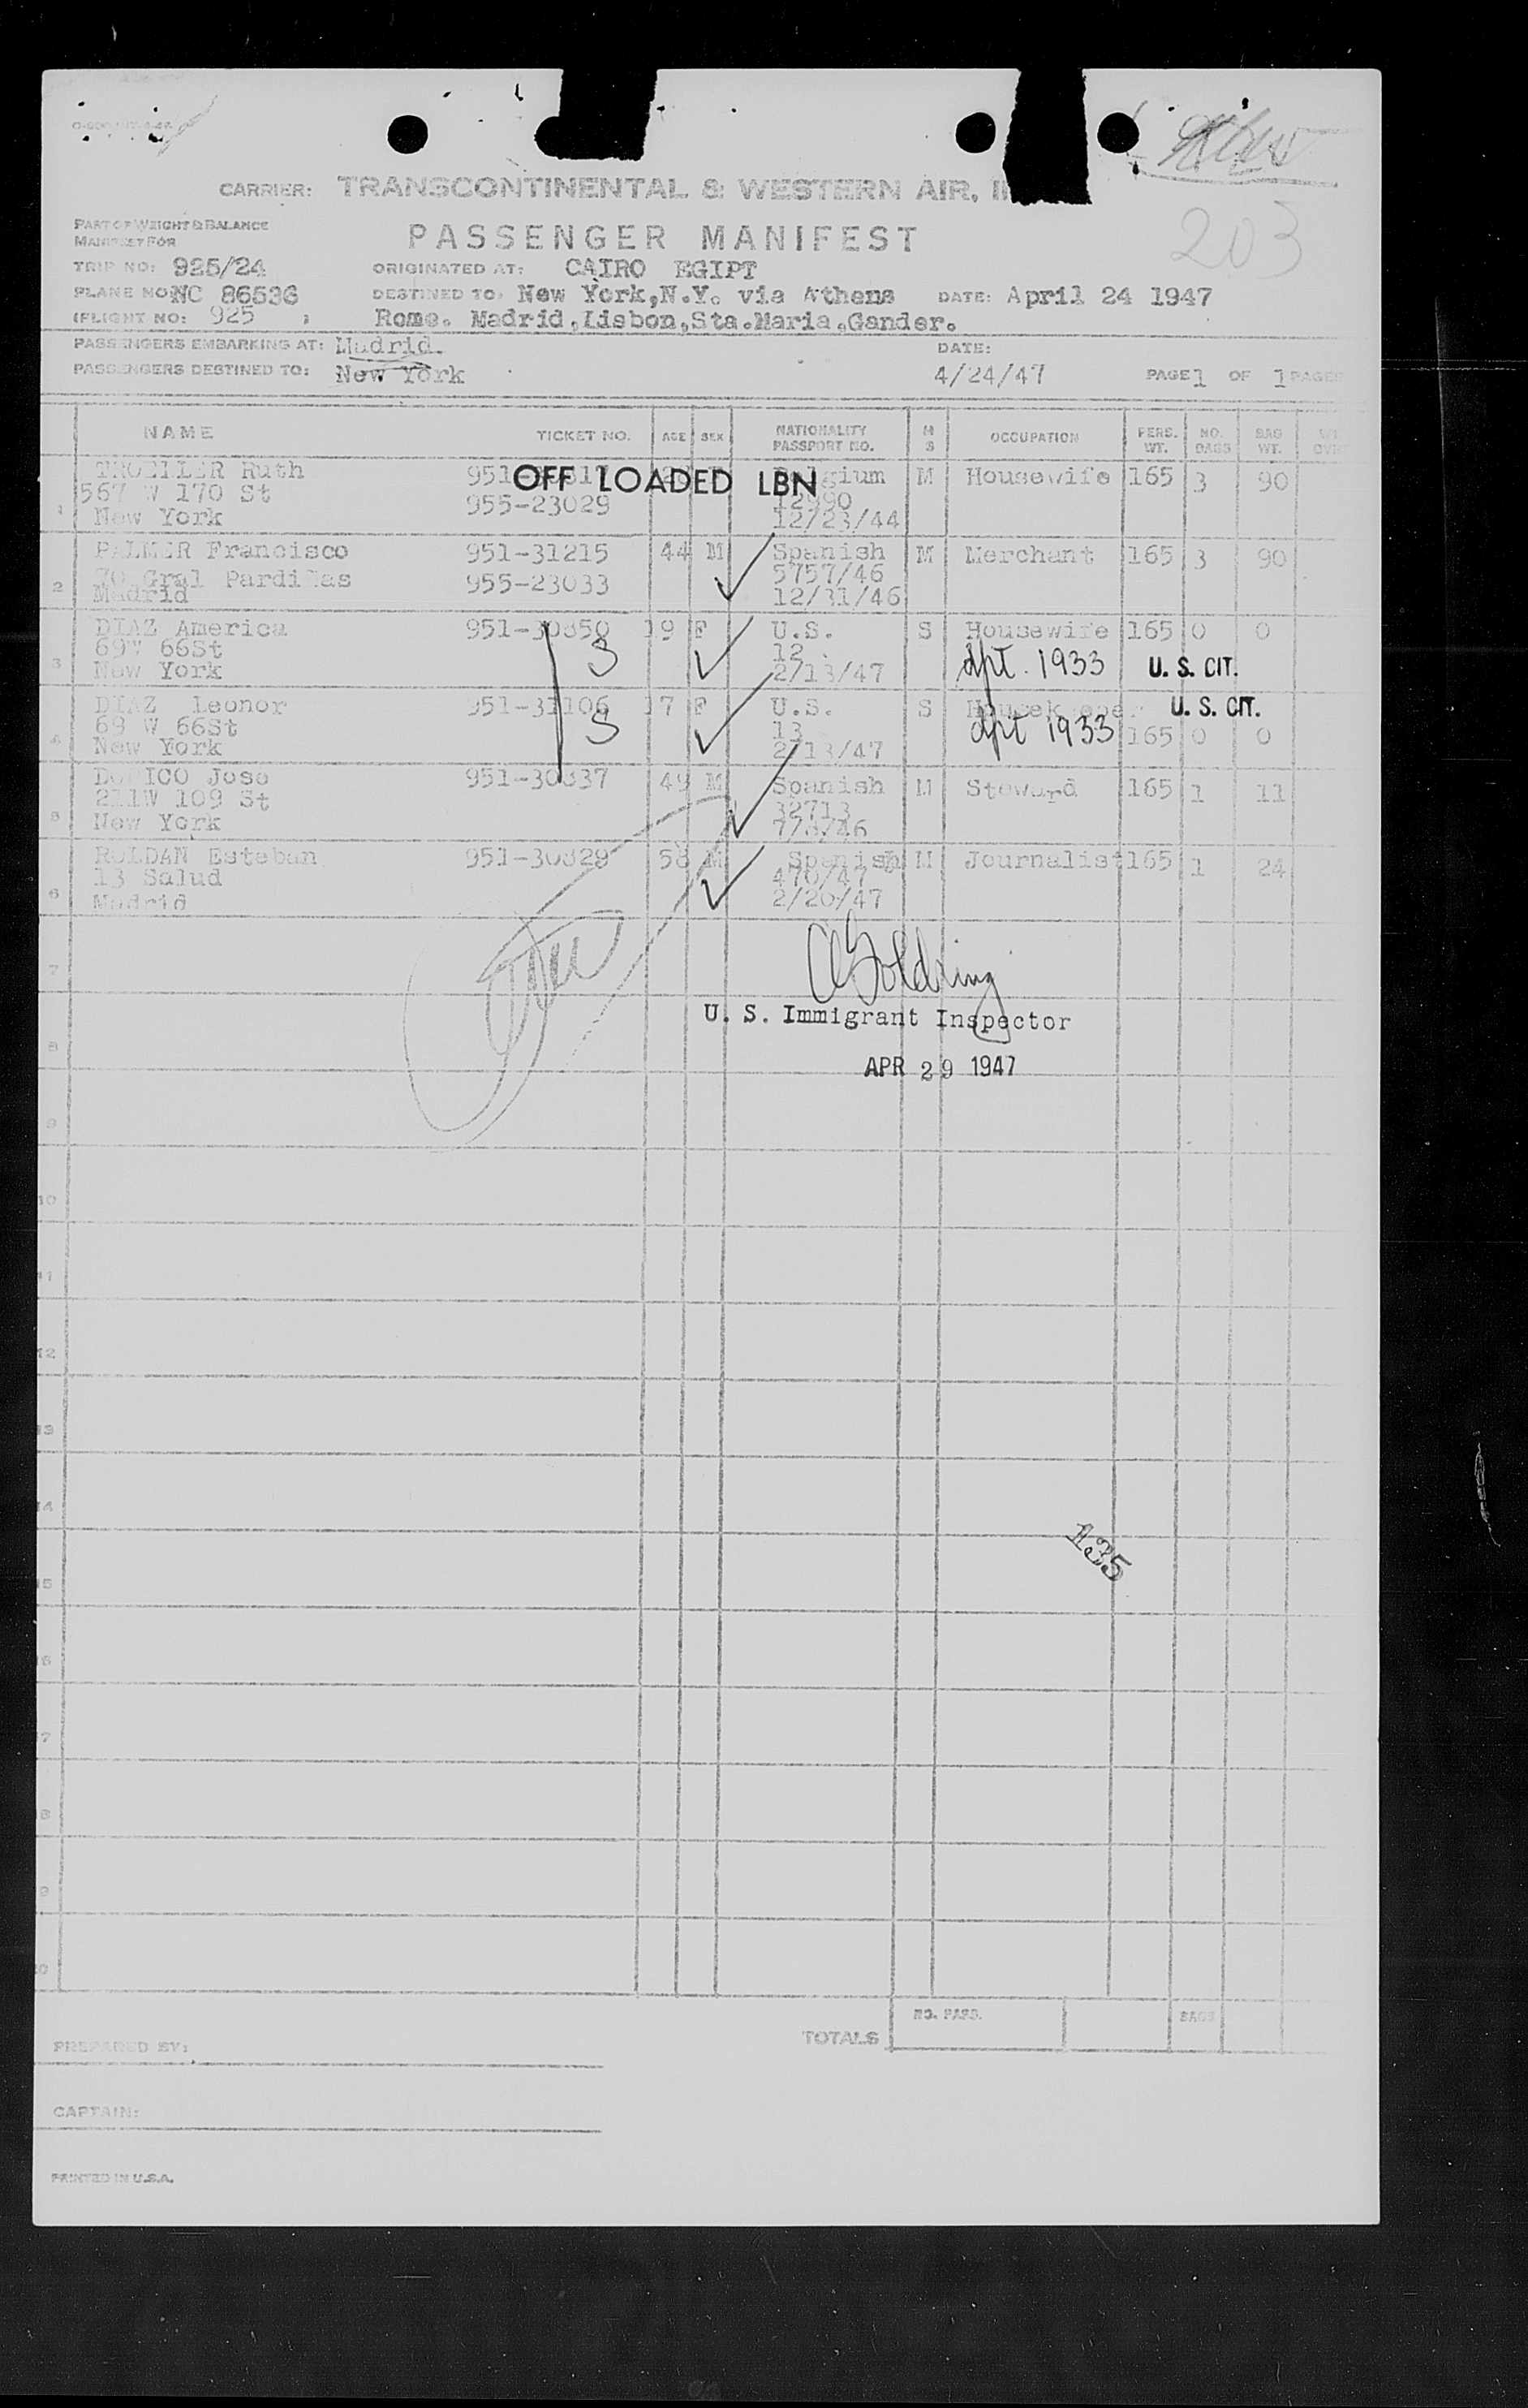 CARRIER: TRANSCONTINENTAL & WESTERN AIR, I
PART OF WEIGHT & BALANCE
MANIFEST FOR
PASSENGER MANIFEST
203
TRIP NO: 925/24 ORIGINATED AT: CAIRO EGIPT
PLANE NO: NC 86536 DESTINED TO: New York,N.Y. via Athens DATE: April 24 1947
(FLIGHT NO: 925 ) Rome. Madrid,Lisbon,Sta.Maria,Gander.
PASSENGERS EMBARKING AT: Madrid. DATE:
PASSENGERS DESTINED TO: New York 4/24/47 PAGE 1 OF 1 PAGES
NAME TICKET NO. AGE SEX NATIONALITY PASSPORT NO. M S OCCUPATION PERS. WT. NO. BAGS BAG WT.
Ruth OFF LOADED LBN M Housewife 165 3 90
567 W 170 St 955-23029 12990
1 New York 12/23/44
PALMER Francisco 951-31215 44 M Spanish M Merchant 165 3 90
70 Gral Pardinas 955-23033 5757/46
2 Madrid 12/31/46
DIAZ America 951-30850 19 F U.S. S Housewife 165 0 0
69W 66St 3 12 dpt. 1933 U. S. CIT.
3 New York 2/13/47
DIAZ Leonor 951-31106 17 F U.S. S Housekeeper U. S. CIT.
69 W 66St 3 13 dpt 1933 165 0 0
4 New York 2/13/47
Jose 951-30837 49 M Spanish M Steward 165 1 11
211W 109 St 32713
5 New York
ROLDAN Esteban 951-30829 58 M Spanish M Journalist 165 1 24
13 Salud 470/47
6 Madrid 2/20/47
7
A Goldring
U. S. Immigrant Inspector
8
APR 29 1947
9
10
11
12
13
14
135
15
16
17
18
19
20
NO. PASS. BAGS
TOTALS
PREPARED BY:
CAPTAIN:
PRINTED IN U.S.A.